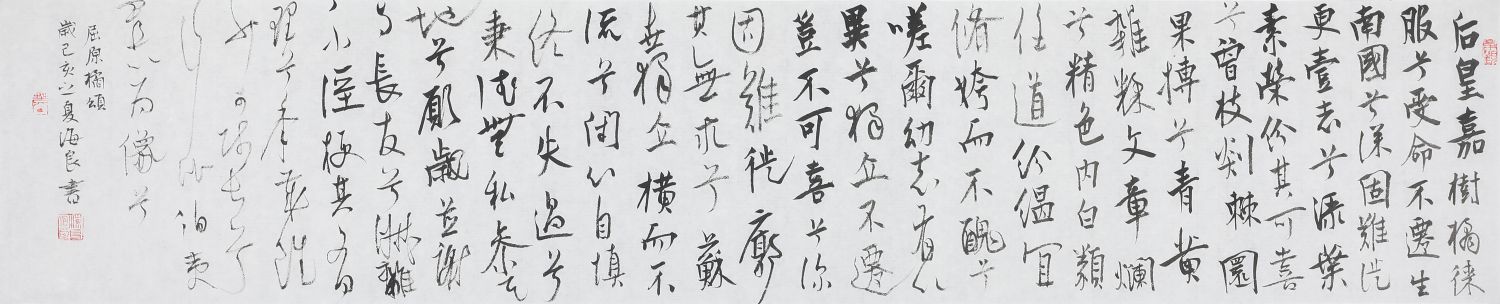 后皇嘉樹橘徠
服兮受命不遷生
南國兮深固難徙
更壹志兮綠葉
素榮紛其可喜
兮曾枝剡棘圓
果摶兮青黃
雜糅文章爛
兮精色內白類
任道紛緼宜
脩姱而不醜兮
嗟爾幼志有以
異兮獨立不遷
豈不可喜兮深
固難徙廓
其無求兮蘇
世獨立橫而不
流兮閉心自慎
終不失過兮
秉德無私參天
地兮願歲並謝
與長友兮淑離
不淫梗其有
理兮年歲雖
少可師長兮
行比伯夷
置以為像兮
屈原橘頌
歲己亥之夏海良書